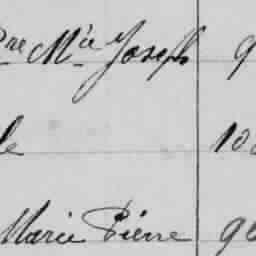 Pre Mie Joseph 9
le 10
Marie Pierre 9